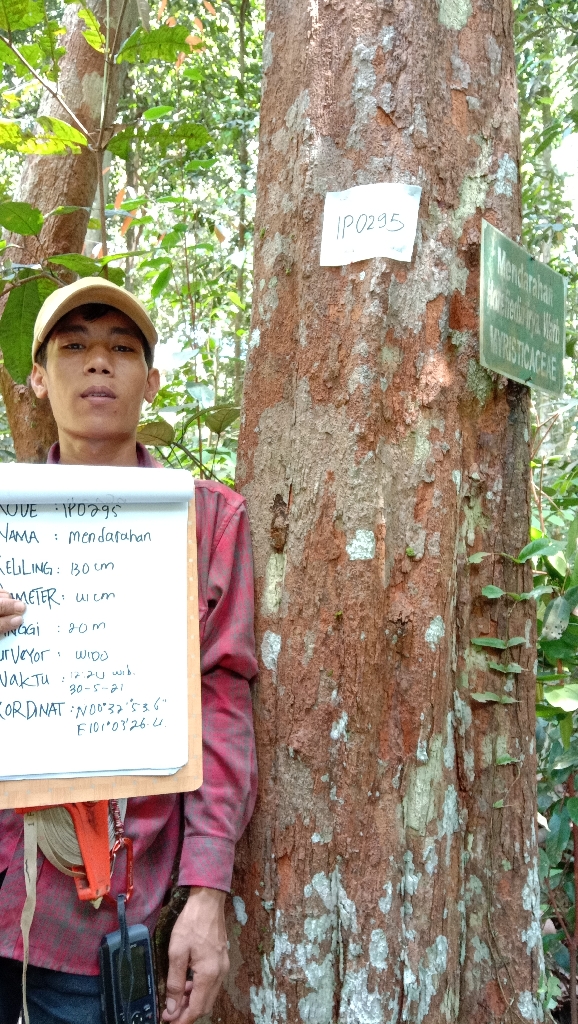 IP0295
Mendarahan
MYRISTICACEAE
KODE : IP0295
NAMA : mendarahan
KELILING : 130 cm
DIAMETER : 41 cm
TINGGI : 20 m
SURVEYOR : WIDO
WAKTU : 12:24 wib.
30-5-21
KORDINAT : N00°32'53.6"
E101°03'26.4.